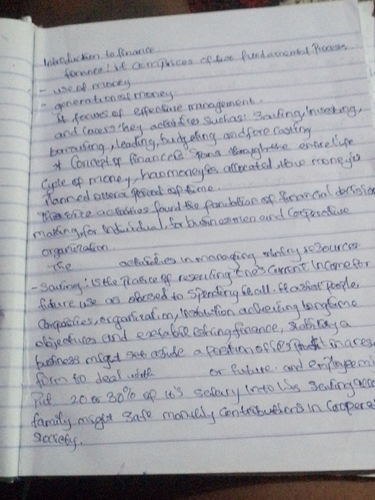 Introduction to finance
finance: it comprises of two fundamental process
- use of money
- generation of money.
It focuses of effective management.
and cover key activities such as: Saving, investing,
borrowing, lending, budgeting and fore casting
* Concept of finance is span through the entire life
Cycle of money, how money is allocated, how money is
Planned over a period of time.
These activities found the foundation of financial decision
making, for individual, for businessmen and Corporative
organization.
The activities in managing money resources
- Saving: is the practice of reserving one's Current income for
future use as opposed to spending it all. It assist people,
Companies, organization, institution achieving long time
objectives and establishing finance, stability, a
business might set aside a portion of its profit in a reserve
form to deal with or future. and employee mi
Put 20 or 30% of its salary into his saving acco
family might safe monthly contributions in Coopera
Society.